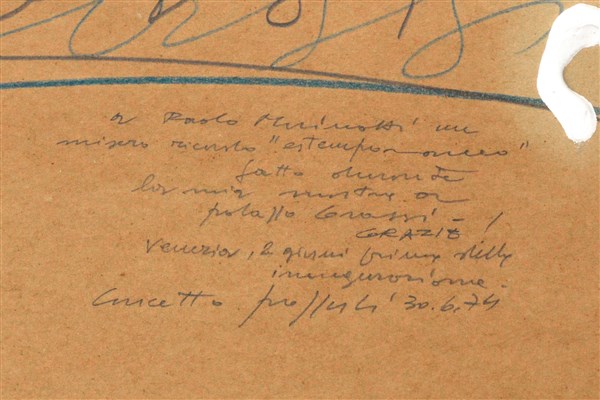 a Paolo Marinotti un
misero ricordo "estemporaneo"
fatto durante
la mia mostra a
palazzo Grassi - !
GRAZIE
Venezia, 2 giorni prima della
inaugurazione.
Concetto Pozzati 30.6.74